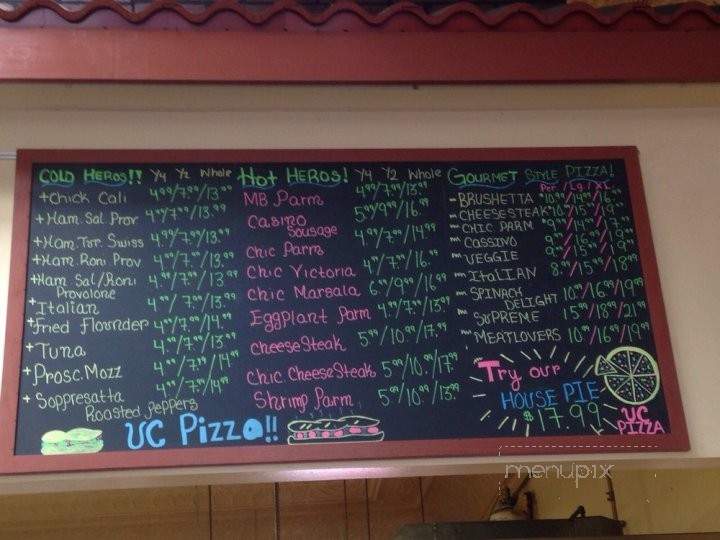 COLD HEROS!! ¼ ½ Whole
+Chick Cali 4.99/7.99/13.99
+Ham. Sal. Prov 4.99/7.99/13.99
+Ham. Tur. Swiss 4.99/7.99/13.99
+Ham. Roni. Prov 4.99/7.99/13.99
+Ham Sal/Roni Provolone 4.99/7.99/13.99
+Italian 4.99/7.99/13.99
+Fried Flounder 4.99/7.99/14.99
+Tuna 4.99/7.99/13.99
+Prosc. Mozz 4.99/7.99/14.99
+Soppresatta 4.99/7.99/14.99
Roasted Peppers
Hot HEROS! ¼ ½ Whole
MB Parm 4.99/7.99/13.99
Casino Sausage 5.99/9.99/16.99
Chic Parm 4.99/7.99/14.99
Chic Victoria 4.99/7.99/16.99
Chic Marsala 6.99/9.99/16.99
Eggplant Parm 4.99/7.99/13.99
CheeseSteak 5.99/10.99/17.99
Chic CheeseSteak 5.99/10.99/17.99
Shrimp Parm 5.99/10.99/13.99
GOURMET STYLE PIZZA!
Per / Lg. / XL
BRUSHETTA
CHEESESTEAK
CHIC PARM
CASSINO
VEGGIE
ITALIAN 8.99/15.99/18.99
SPINACH DELIGHT 10.99/16.99/19.99
SUPREME 15.99/18.99/21.99
MEATLOVERS 10.99/16.99/19.99
Try our
HOUSE PIE
$17.99
UC PIZZA
UC Pizza!!
menupix